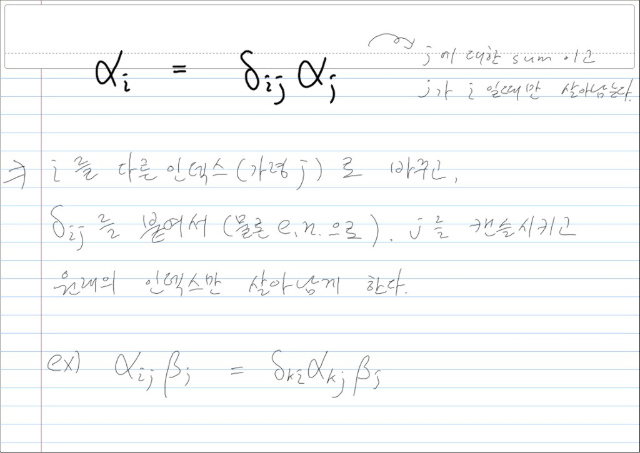 αᵢ = δᵢⱼ αⱼ
j에 대한 sum이고
j가 i일때만 살아남는다.
⇒ i를 다른 인덱스(가령 j)로 바꾸고,
δᵢⱼ를 붙여서 (물론 e.n.으로). j를 캔슬시키고
원래의 인덱스만 살아남게 한다.
ex) αᵢⱼ βⱼ = δₖᵢ αₖⱼ βⱼ